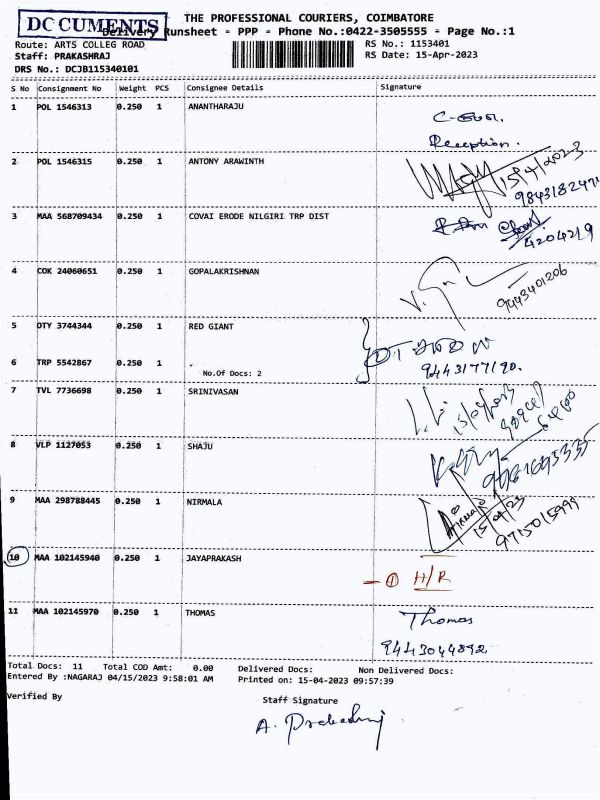 DC CUMENTS
THE PROFESSIONAL COURIERS, COIMBATORE
Delivery Runsheet - PPP - Phone No.:0422-3505555 - Page No.:1
Route: ARTS COLLEG ROAD RS No.: 1153401
Staff: PRAKASHRAJ RS Date: 15-Apr-2023
DRS No.: DCJB115340101
S No Consignment No Weight PCS Consignee Details Signature
1 POL 1546313 0.250 1 ANANTHARAJU
Reception.
2 POL 1546315 0.250 1 ANTONY ARAWINTH 15/4/2023
3 MAA 568709434 0.250 1 COVAI ERODE NILGIRI TRP DIST
4204219
4 COK 24060651 0.250 1 GOPALAKRISHNAN
9443401206
5 OTY 3744344 0.250 1 RED GIANT
6 TRP 5542867 0.250 1 .
No.Of Docs: 2 9443177190.
7 TVL 7736698 0.250 1 SRINIVASAN
8 VLP 1127053 0.250 1 SHAJU
9 MAA 298788445 0.250 1 NIRMALA
15/04/23
9715015999
10 MAA 102145940 0.250 1 JAYAPRAKASH
- 1 H/R
11 MAA 102145970 0.250 1 THOMAS Thomas
9443044892
Total Docs: 11 Total COD Amt: 0.00 Delivered Docs: Non Delivered Docs:
Entered By :NAGARAJ 04/15/2023 9:58:01 AM Printed on: 15-04-2023 09:57:39
Verified By Staff Signature